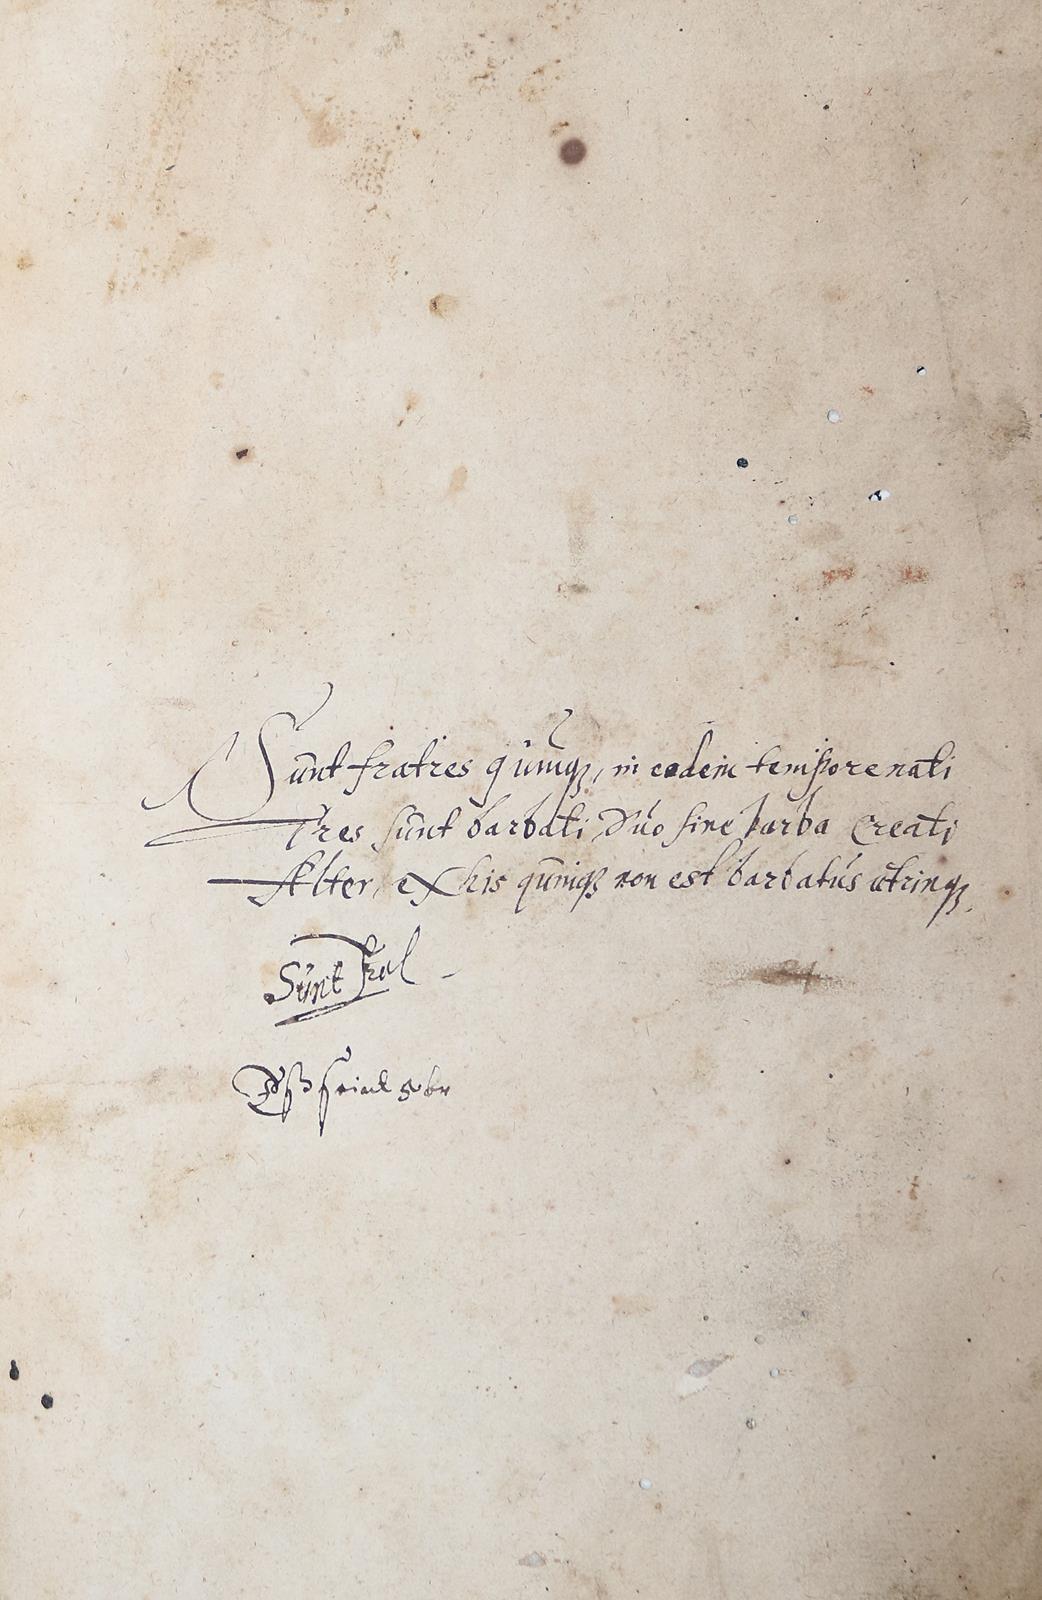 Sunt fratres quinq3, in eodem tempore nati
Tres sunt barbati Duo sine barba Creati
Alter, ex his quinq3 non est barbatus utrinq3
Sunt frat